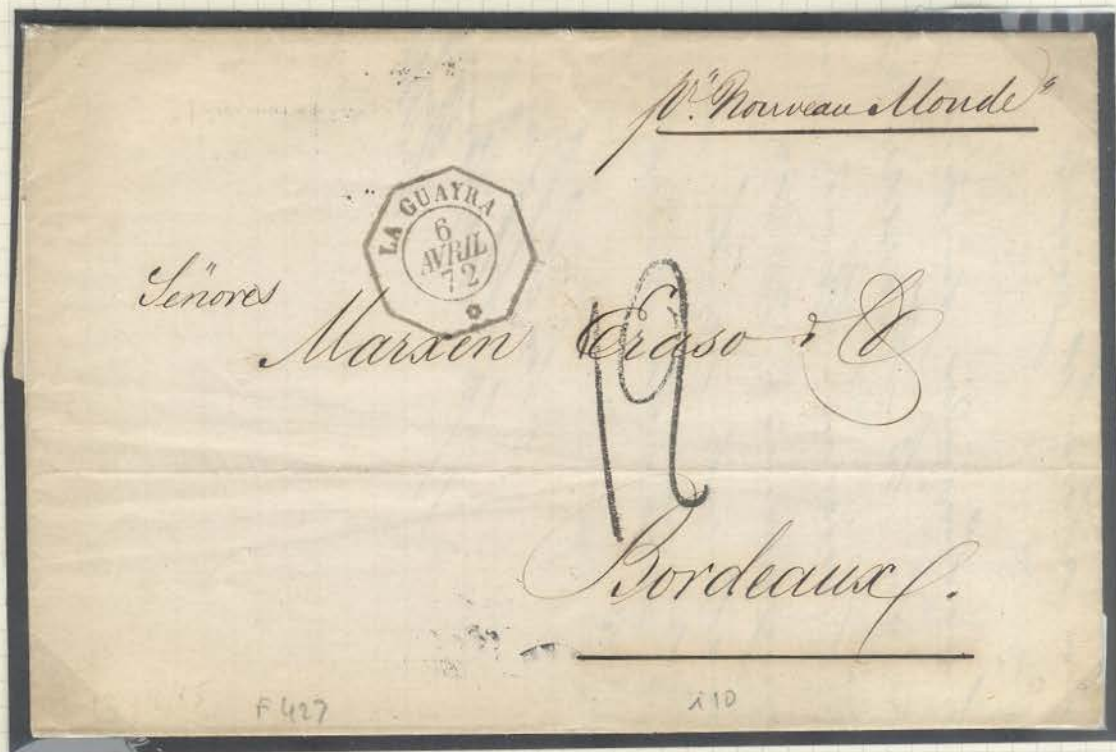 pr. "Nouveau Monde"
LA GUAYRA
6
AVRIL
72
Señores
Marxen Eraso & Co
12
Bordeaux.
F 427
110